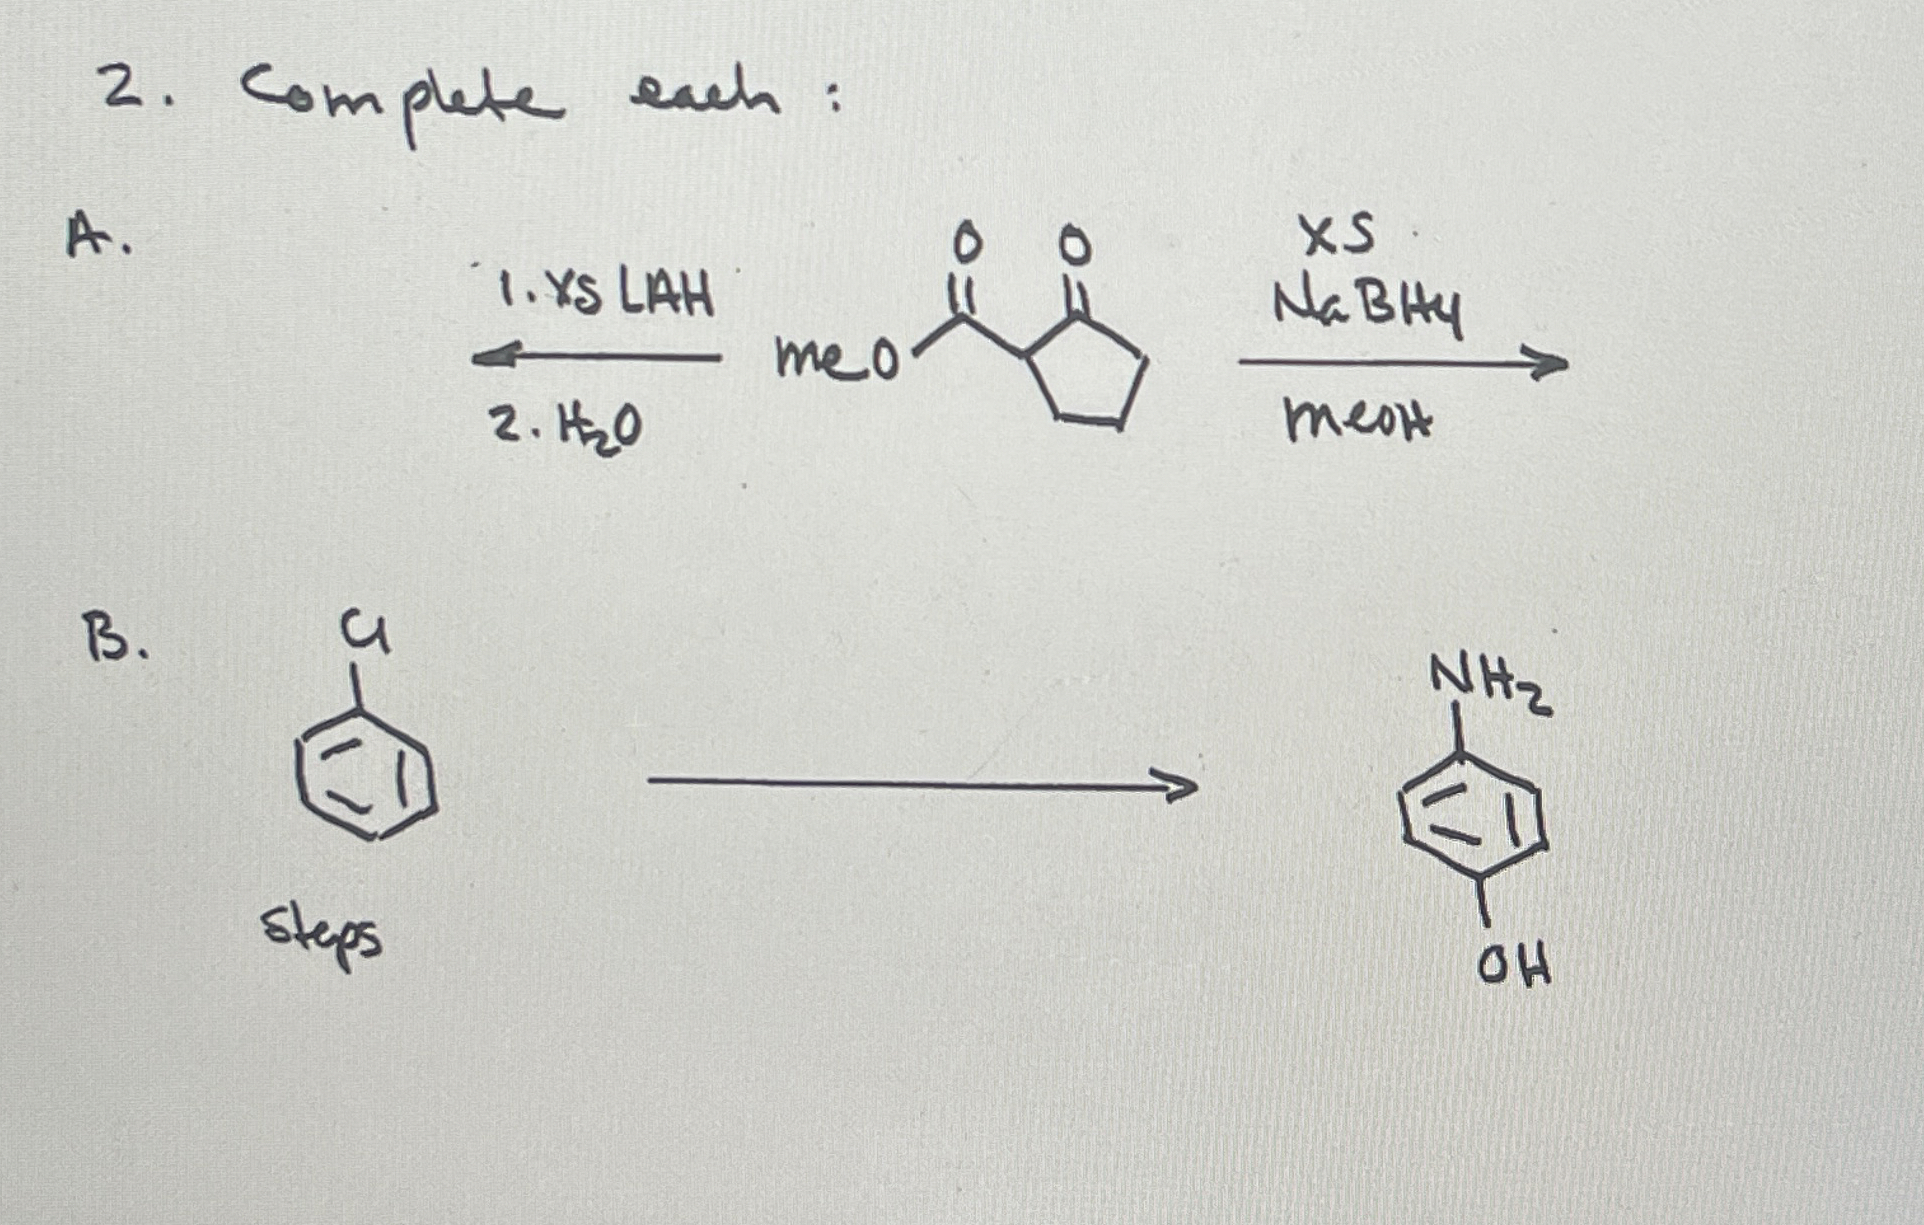 2. Complete each :
A.
1. XS LAH
2. H2O
O O
MeO
XS
NaBH4
MeOH
B.
Cl
NH2
OH
Steps